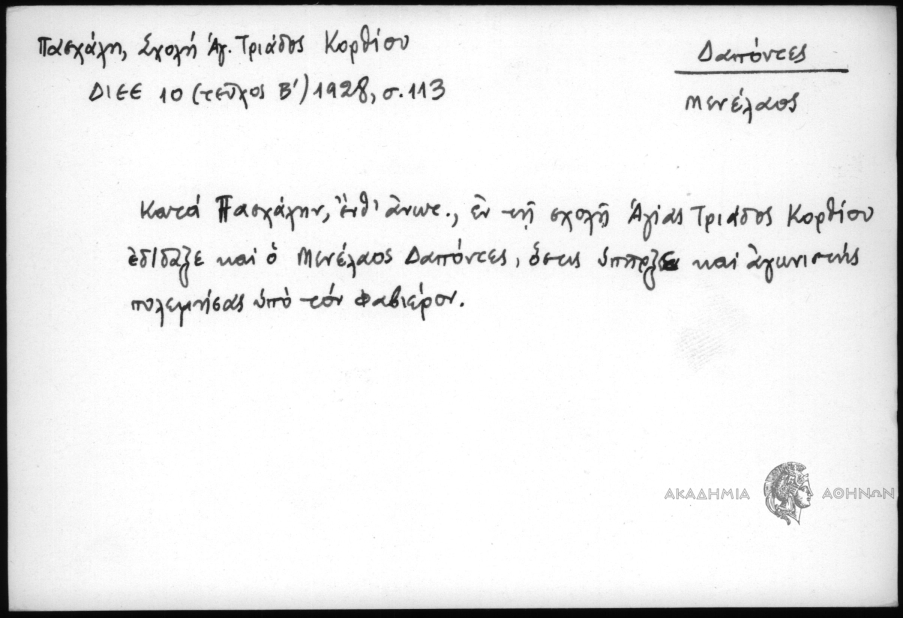 Πασχάλη, Σχολή Ἁγ. Τριάδος Κορθίου
ΔΙΕΕ 10 (τεῦχος Β') 1928, σ. 113
Δαπόντες
Μενέλαος
Κατά Πασχάλην, ἔνθ' ἄνωτ., ἐν τῇ σχολῇ Ἁγίας Τριάδος Κορθίου
ἐδίδαξε καί ὁ Μενέλαος Δαπόντες, ὅστις ὑπῆρξε καί ἀγωνιστής
πολεμήσας ὑπό τόν Φαβιέρον.
ΑΚΑΔΗΜΙΑ ΑΘΗΝΩΝ